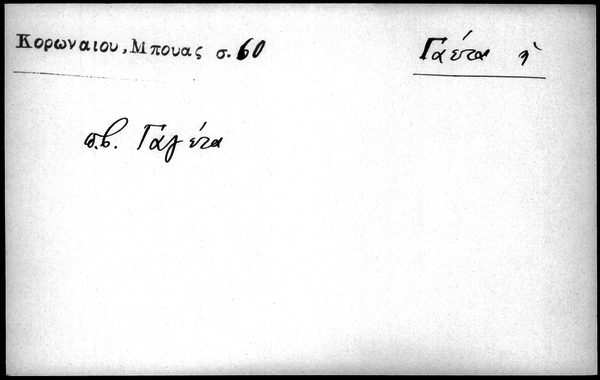 Κορωναιου, Μπουας σ. 60
Γαέτα ἡ
π.β. Γαγέτα